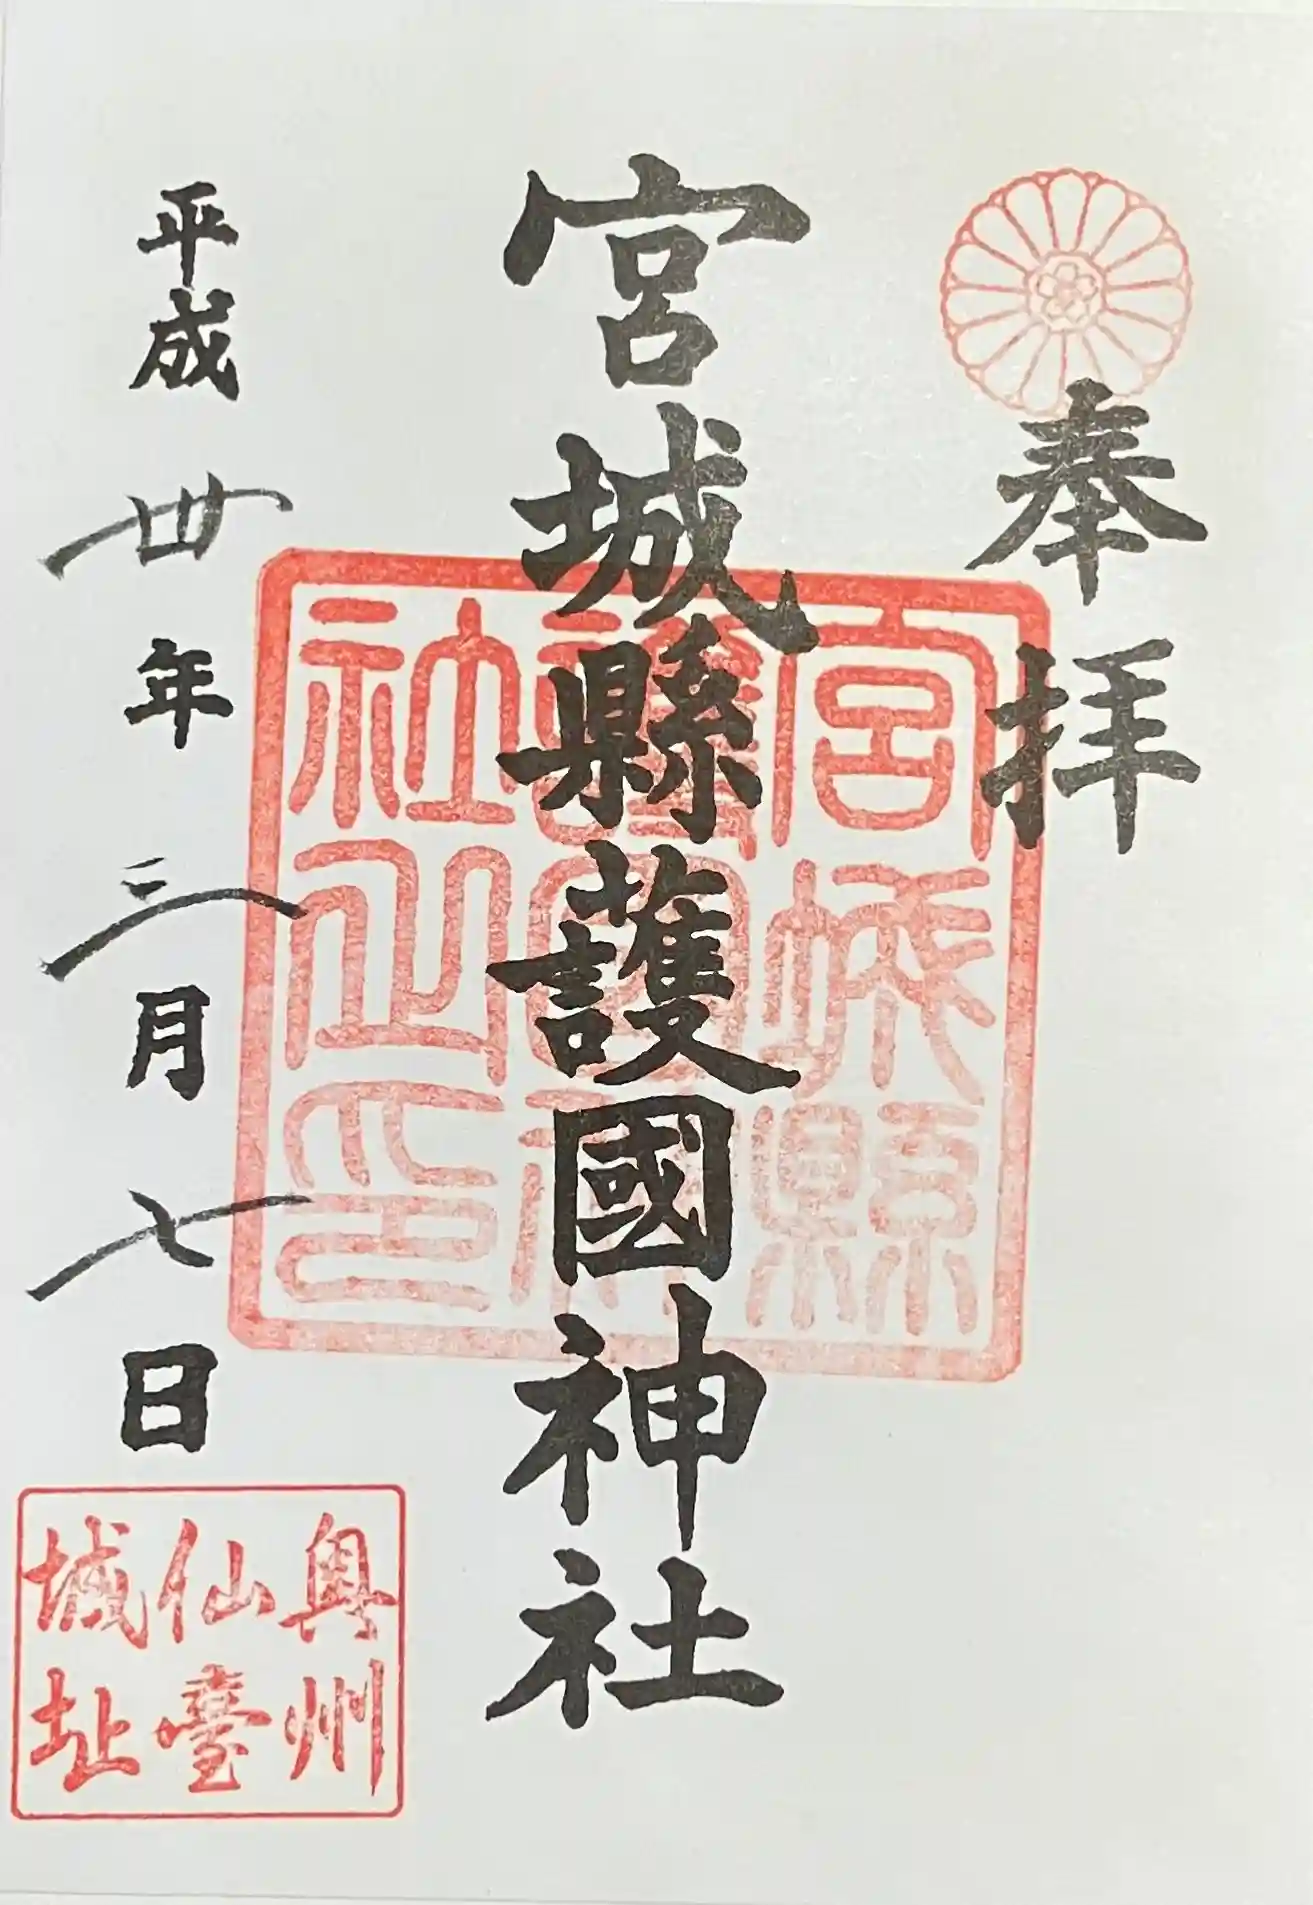 奉拝
宮城縣護國神社
宮城縣護國神社之印
平成卅年三月七日
奥州
仙臺
城址